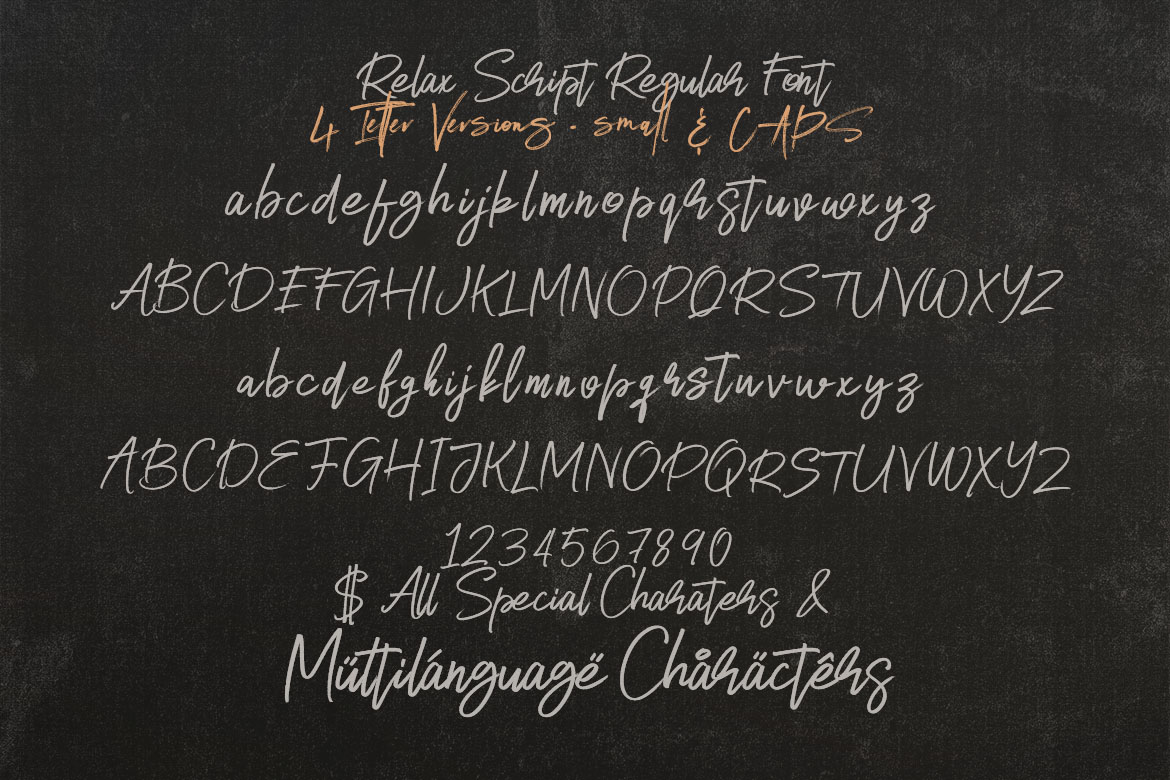 Relax Script Regular Font
4 letter Versions . small & CAPS
abcdefghijklmnopqrstuvwxyz
ABCDEFGHIJKLMNOPQRSTUVWXYZ
abcdefghijklmnopqrstuvwxyz
ABCDEFGHIJKLMNOPQRSTUVWXYZ
1234567890
$ All Special Charaters &
Müttilánguagë Chåräctêrs